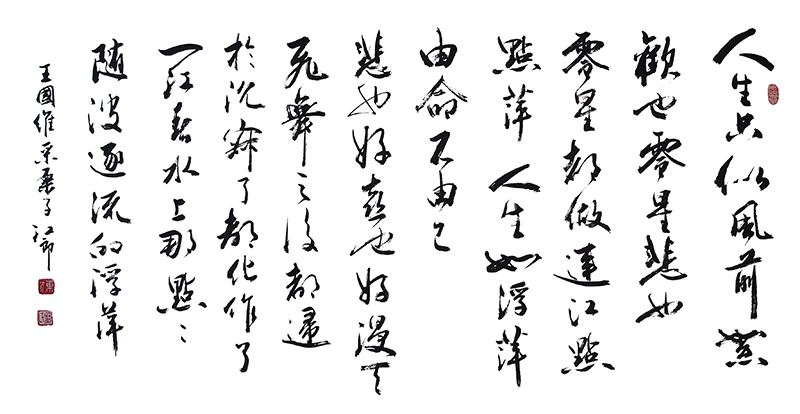 人生只似風前絮
歡也零星悲也
零星都做連江點
點萍 人生如浮萍
由命不由己
悲也好喜也好漫天
飛舞之後都歸
於沉寂了都化作了
一江春水上那點點
隨波逐流的浮萍
王國維采桑子